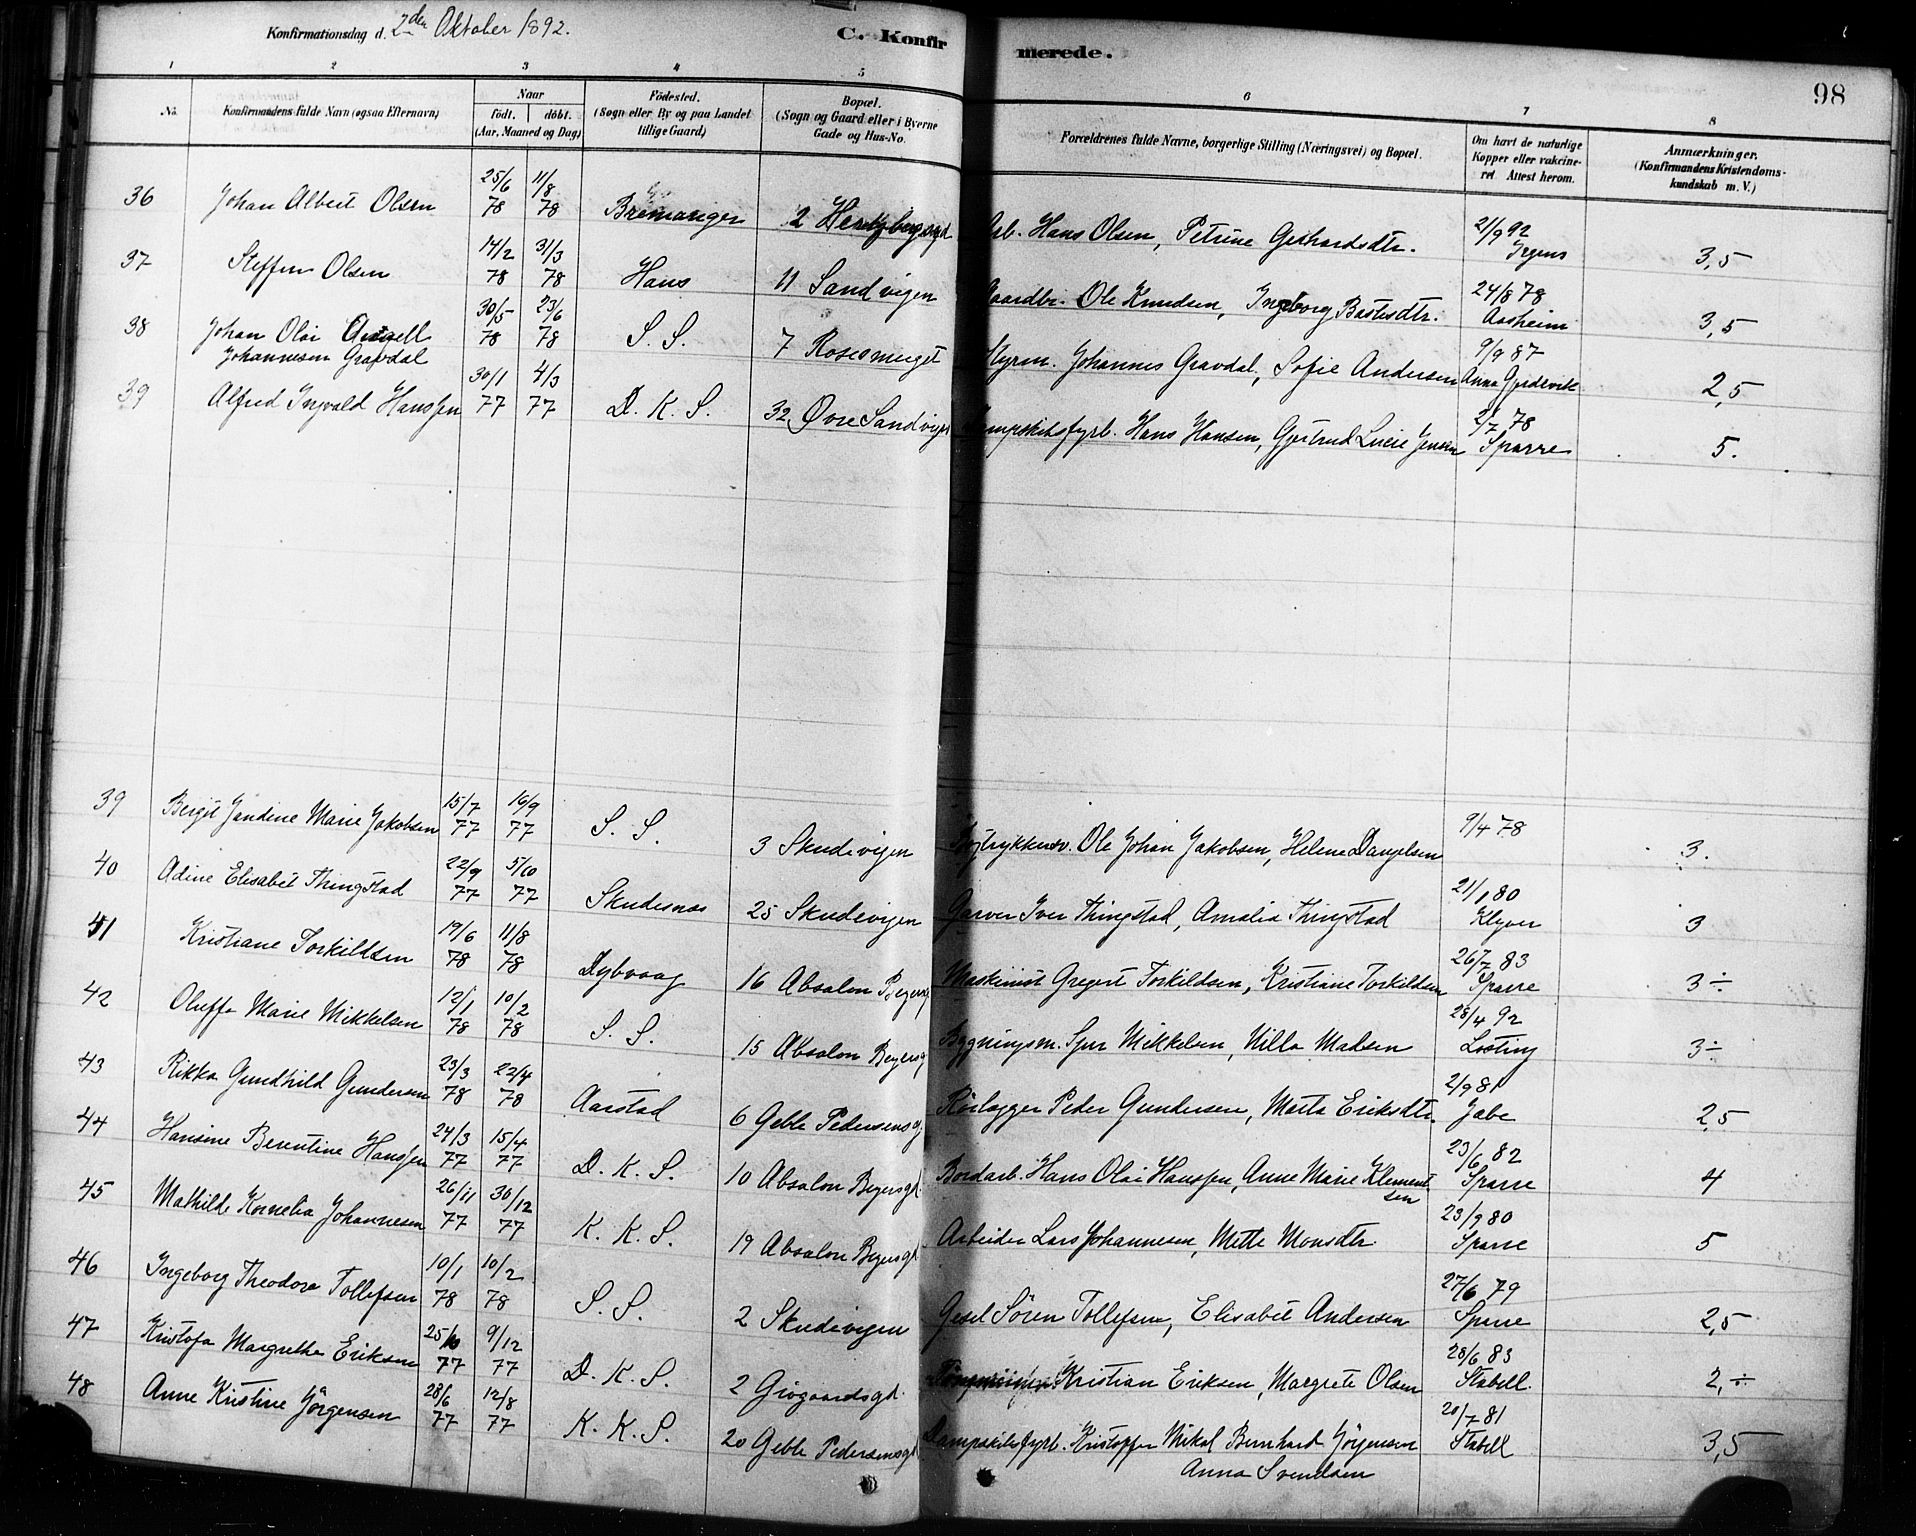 Konfirmationsdag d. 2den Oktober 1892.
C. Konfirmerede.
98
1 2 3 4 5 6 7 8
No.
Konfirmandens fulde Navn (ogsaa Efternavn)
Naar
født. døbt.
(Aar, Maaned og Dag)
Fødested.
(Sogn eller By og paa Landet
tillige Gaard)
Bopæl.
(Sogn og Gaard eller i Byerne
Gade og Hus-No.
Forældrenes fulde Navne, borgerlige Stilling (Næringsvei) og Bopæl.
Om havt de naturlige
Kopper eller vakcine-
ret. Attest herom.
Anmærkninger.
(Konfirmandens Kristendoms-
kundskab m. V.)
36 Johan Albert Olsen 25/6 78 11/8 78 Bremanger 2 Arb. Hans Olsen, Petrine Gerhardsdtr. 21/9 92 Irgens 3,5
37 Steffen Olsen 14/2 78 31/3 78 Haus 11 Sandvigen Gaardbr. Ole Knudsen, Ingeborg Bastesdtr. 24/8 78 Aasheim 3,5
38 Johan Olai Angell 30/5 78 23/6 78 S. S. 7 Rosesmuget Styrm. Johannes Gravdal, Sofie Andersen 9/9 87 Anna Gjerdevik 2,5
Johannesen Gravdal
39 Alfred Ingvald Hanssen 30/1 77 4/3 77 D. K. S. 32 Øvre Sandvigen Dampskibsfyrb. Hans Hansen, Gjertrud Lucie Jensen 2/7 78 Sparre 5.
39 Bergit Jandine Marie Jakobsen 15/7 77 16/9 77 S. S. 3 Skudevigen Ole Johan Jakobsen, Helene Danielsen 9/4 78 3.
40 Adine Elisabet Thingstad 22/9 77 5/10 77 Skudesnæs 25 Skudevigen Garver Iver Thingstad, Amalia Thingstad 21/1 80 Klyver 3
41 Kristiane Torkildsen 19/6 78 11/8 78 Dybvaag 16 Absalon Beyersg Maskinist Gregert Torkildsen, Kristiane Torkildsen 26/7 83 Sparre 3÷
42 Oluffa Marie Mikkelsen 12/1 78 10/2 78 S. S. 15 Absalon Beyersg Bygningsm. Sjur Mikkelsen, Nilla Madsen 28/4 92 Losting 3÷
43 Rikka Gundhild Gundersen 23/3 78 22/4 78 Aarstad 6 Geble Pedersensg. Rørlægger Peder Gundersen, Marta Eriksdtr. 2/9 81 Jabe 2,5
44 Hansine Berentine Hanssen 24/3 77 15/4 77 D. K. S. 10 Absalon Beyersgd. Bordarb. Hans Olai Hanssen, Anne Marie Klement- 23/6 82 Sparre 4
sen
45 Mathilde Kornelia Johannesen 26/11 77 30/12 77 K. K. S. 19 Absalon Beyersgd. Arbeider Lars Johannesen, Mette Monsdtr. 23/9 80 Sparre 5
46 Ingeborg Theodora Tollefsen 10/1 78 10/2 78 S. S. 2 Skudevigen Gesel Søren Tollefsen, Elisabet Andersen 27/6 79 Sparre 2,5
47 Kristofa Margrethe Eriksen 25/10 77 9/12 77 D. K. S. 2 Grøgaardsgd. Kristian Eriksen, Margrete Olsen 28/6 83 Stabell. 2,÷
48 Anne Kristine Jørgensen 28/6 77 12/8 77 K. K. S. 20 Geble Pedersensgd Dampskibsfyrb. Kristoffer Mikal Bernhard Jørgensen 20/7 81 Stabell 3,5
Anna Svendsen